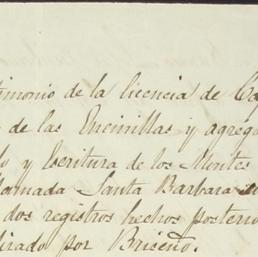 timonio de la licencia de Ca
de las Encinillas y agreg
y Escritura de los Montes
llamada Santa Barbara
dos registros hechos posterio
tirado por Briseño.